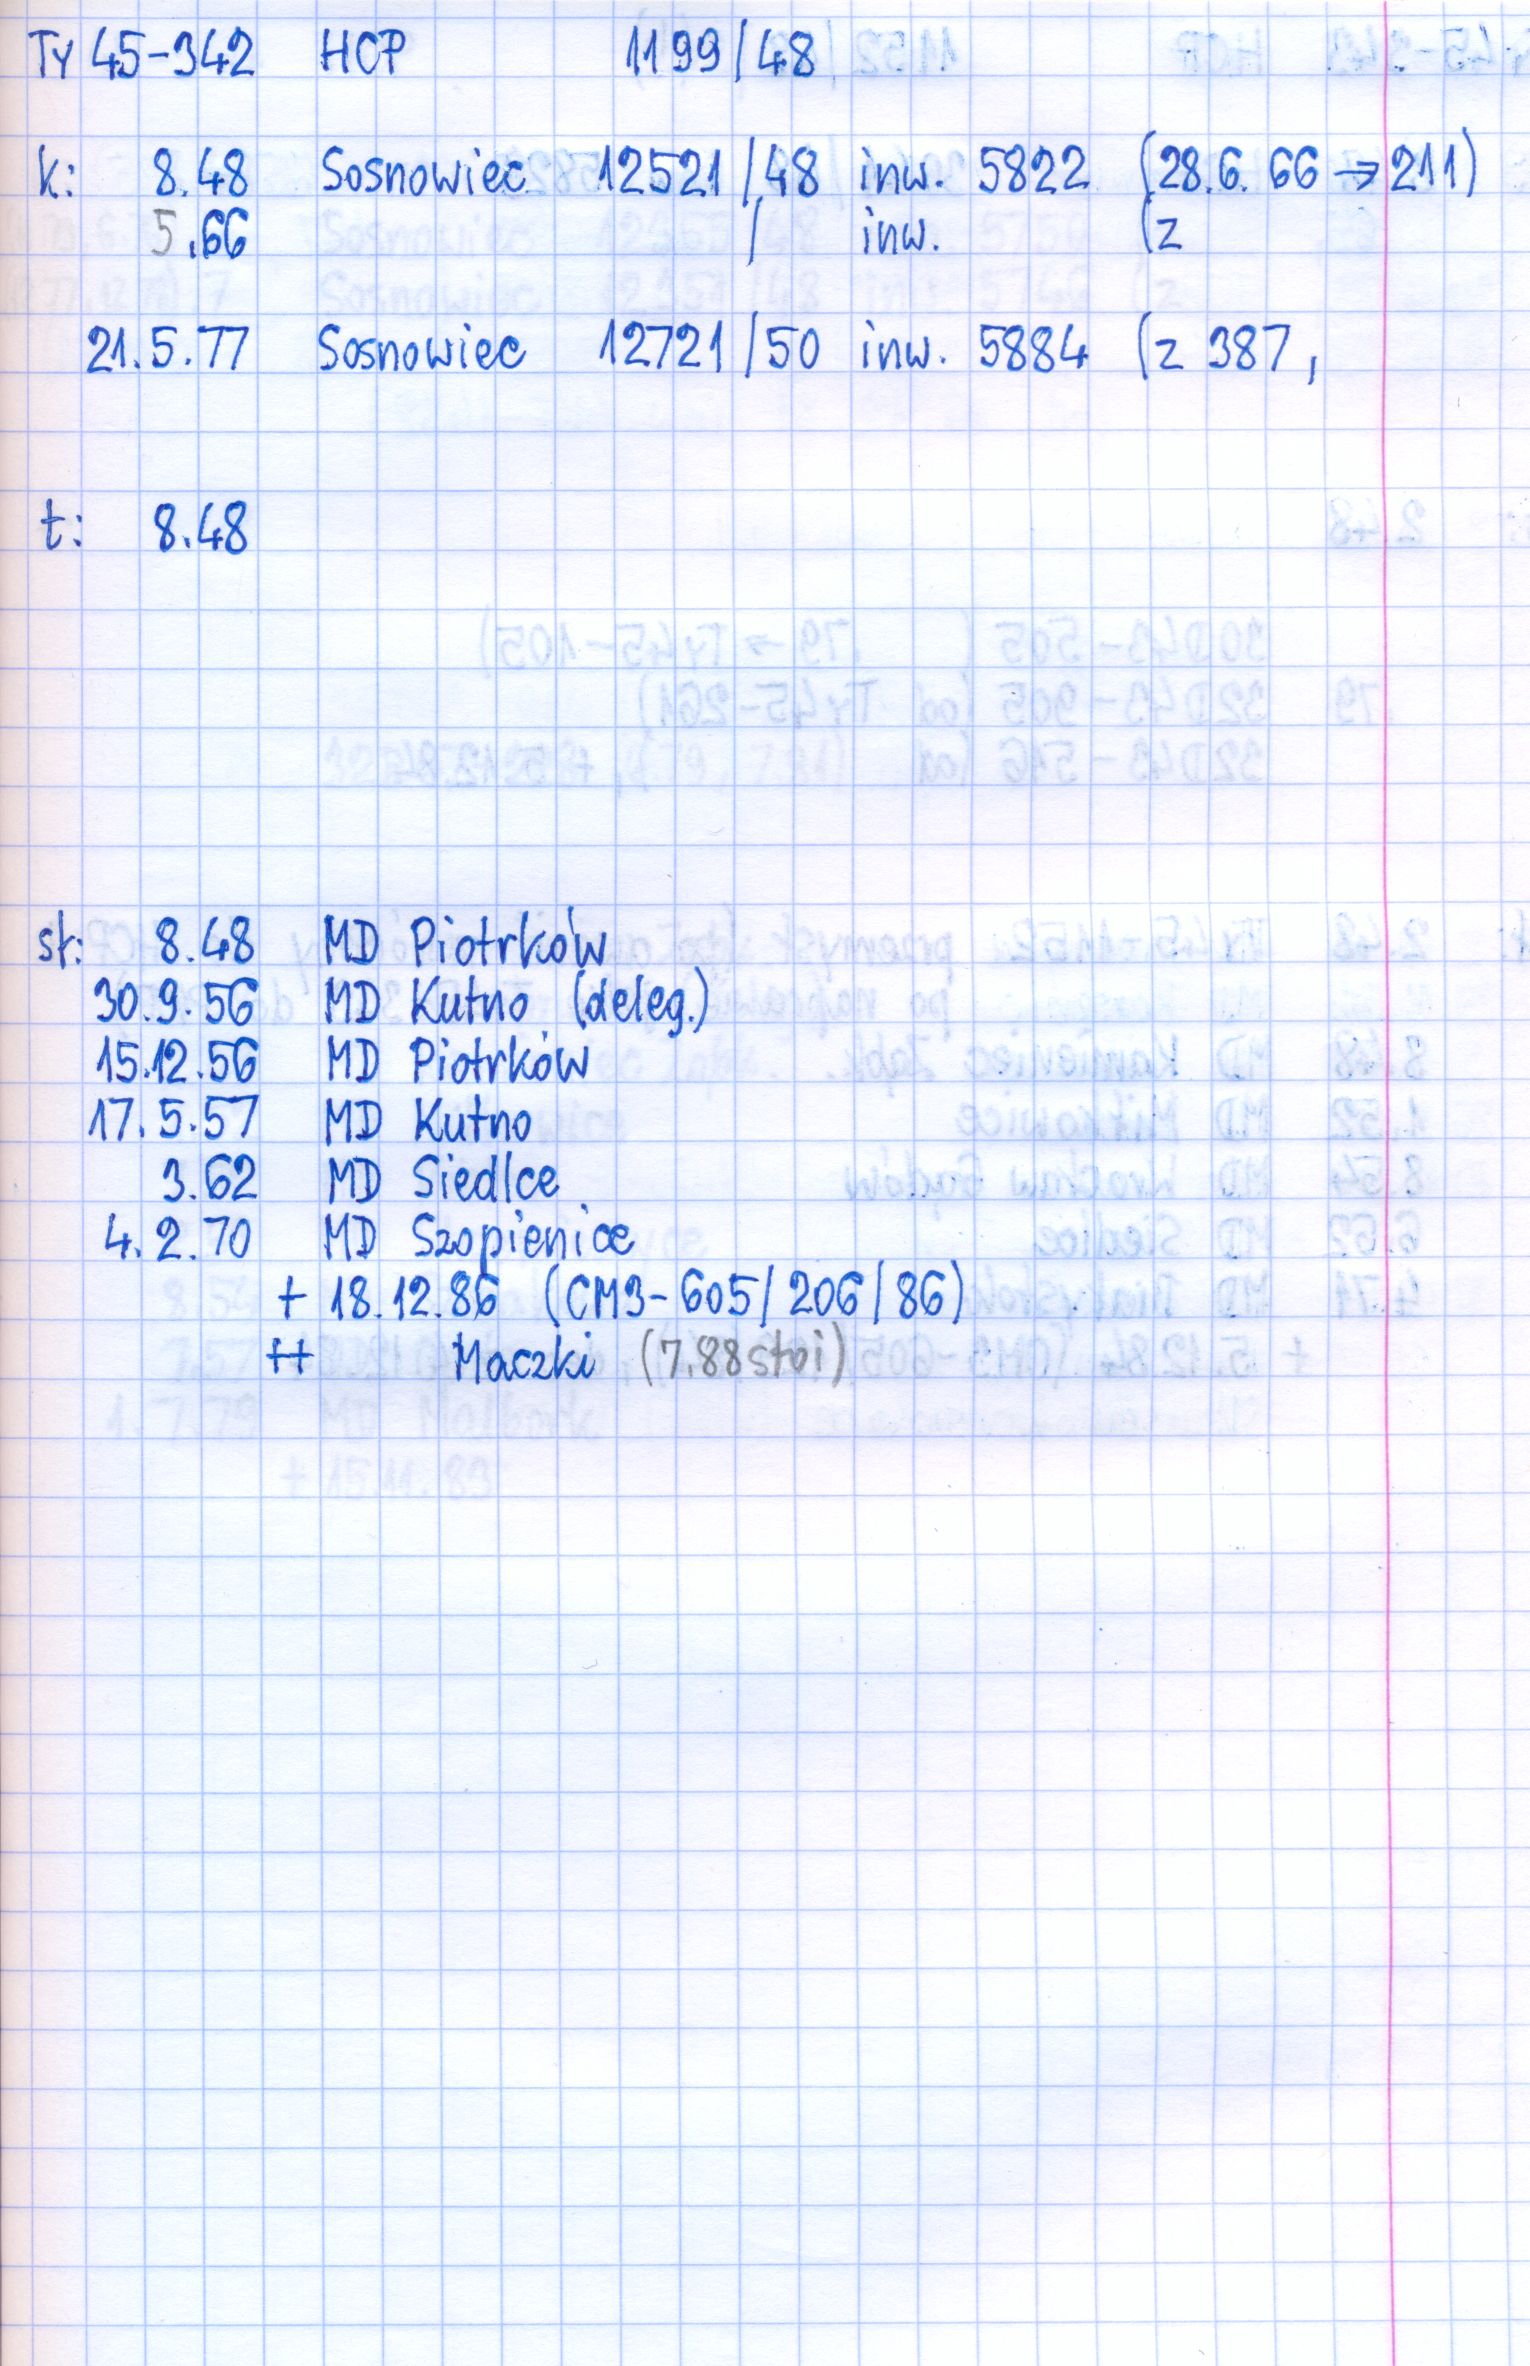 Ty 45-342 HCP 1199/48
k: 8.48 Sosnowiec 12521/48 inw. 5822 (28.6.66 → 211)
5.66 / inw. (z
21.5.77 Sosnowiec 12721/50 inw. 5884 (z 387,
t: 8.48
sł: 8.48 MD Piotrków
30.9.56 MD Kutno (deleg.)
15.12.56 MD Piotrków
17.5.57 MD Kutno
3.62 MD Siedlce
4.2.70 MD Szopienice
+ 18.12.86 (CM3-605/206/86)
++ Maczki (7.88 stoi)